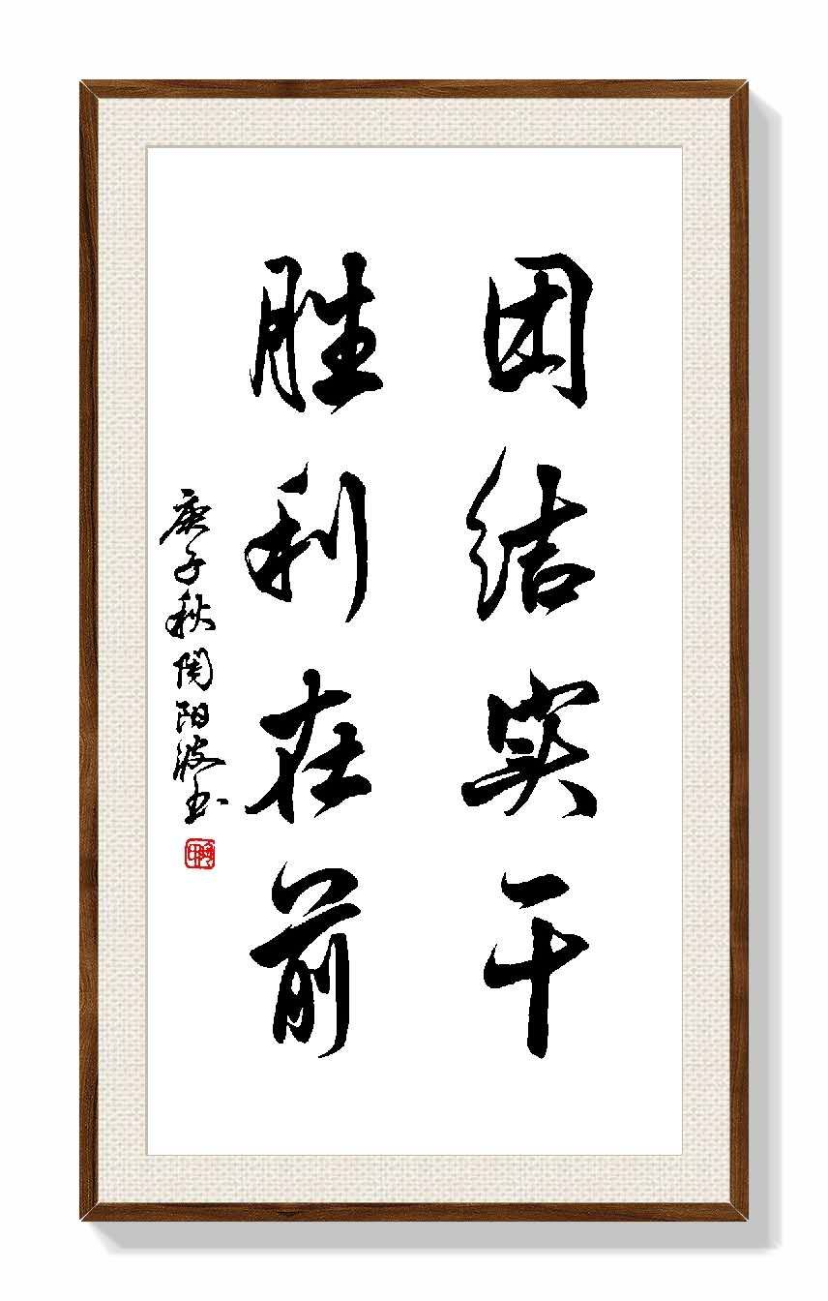 团结实干
胜利在前
庚子秋陶阳波书